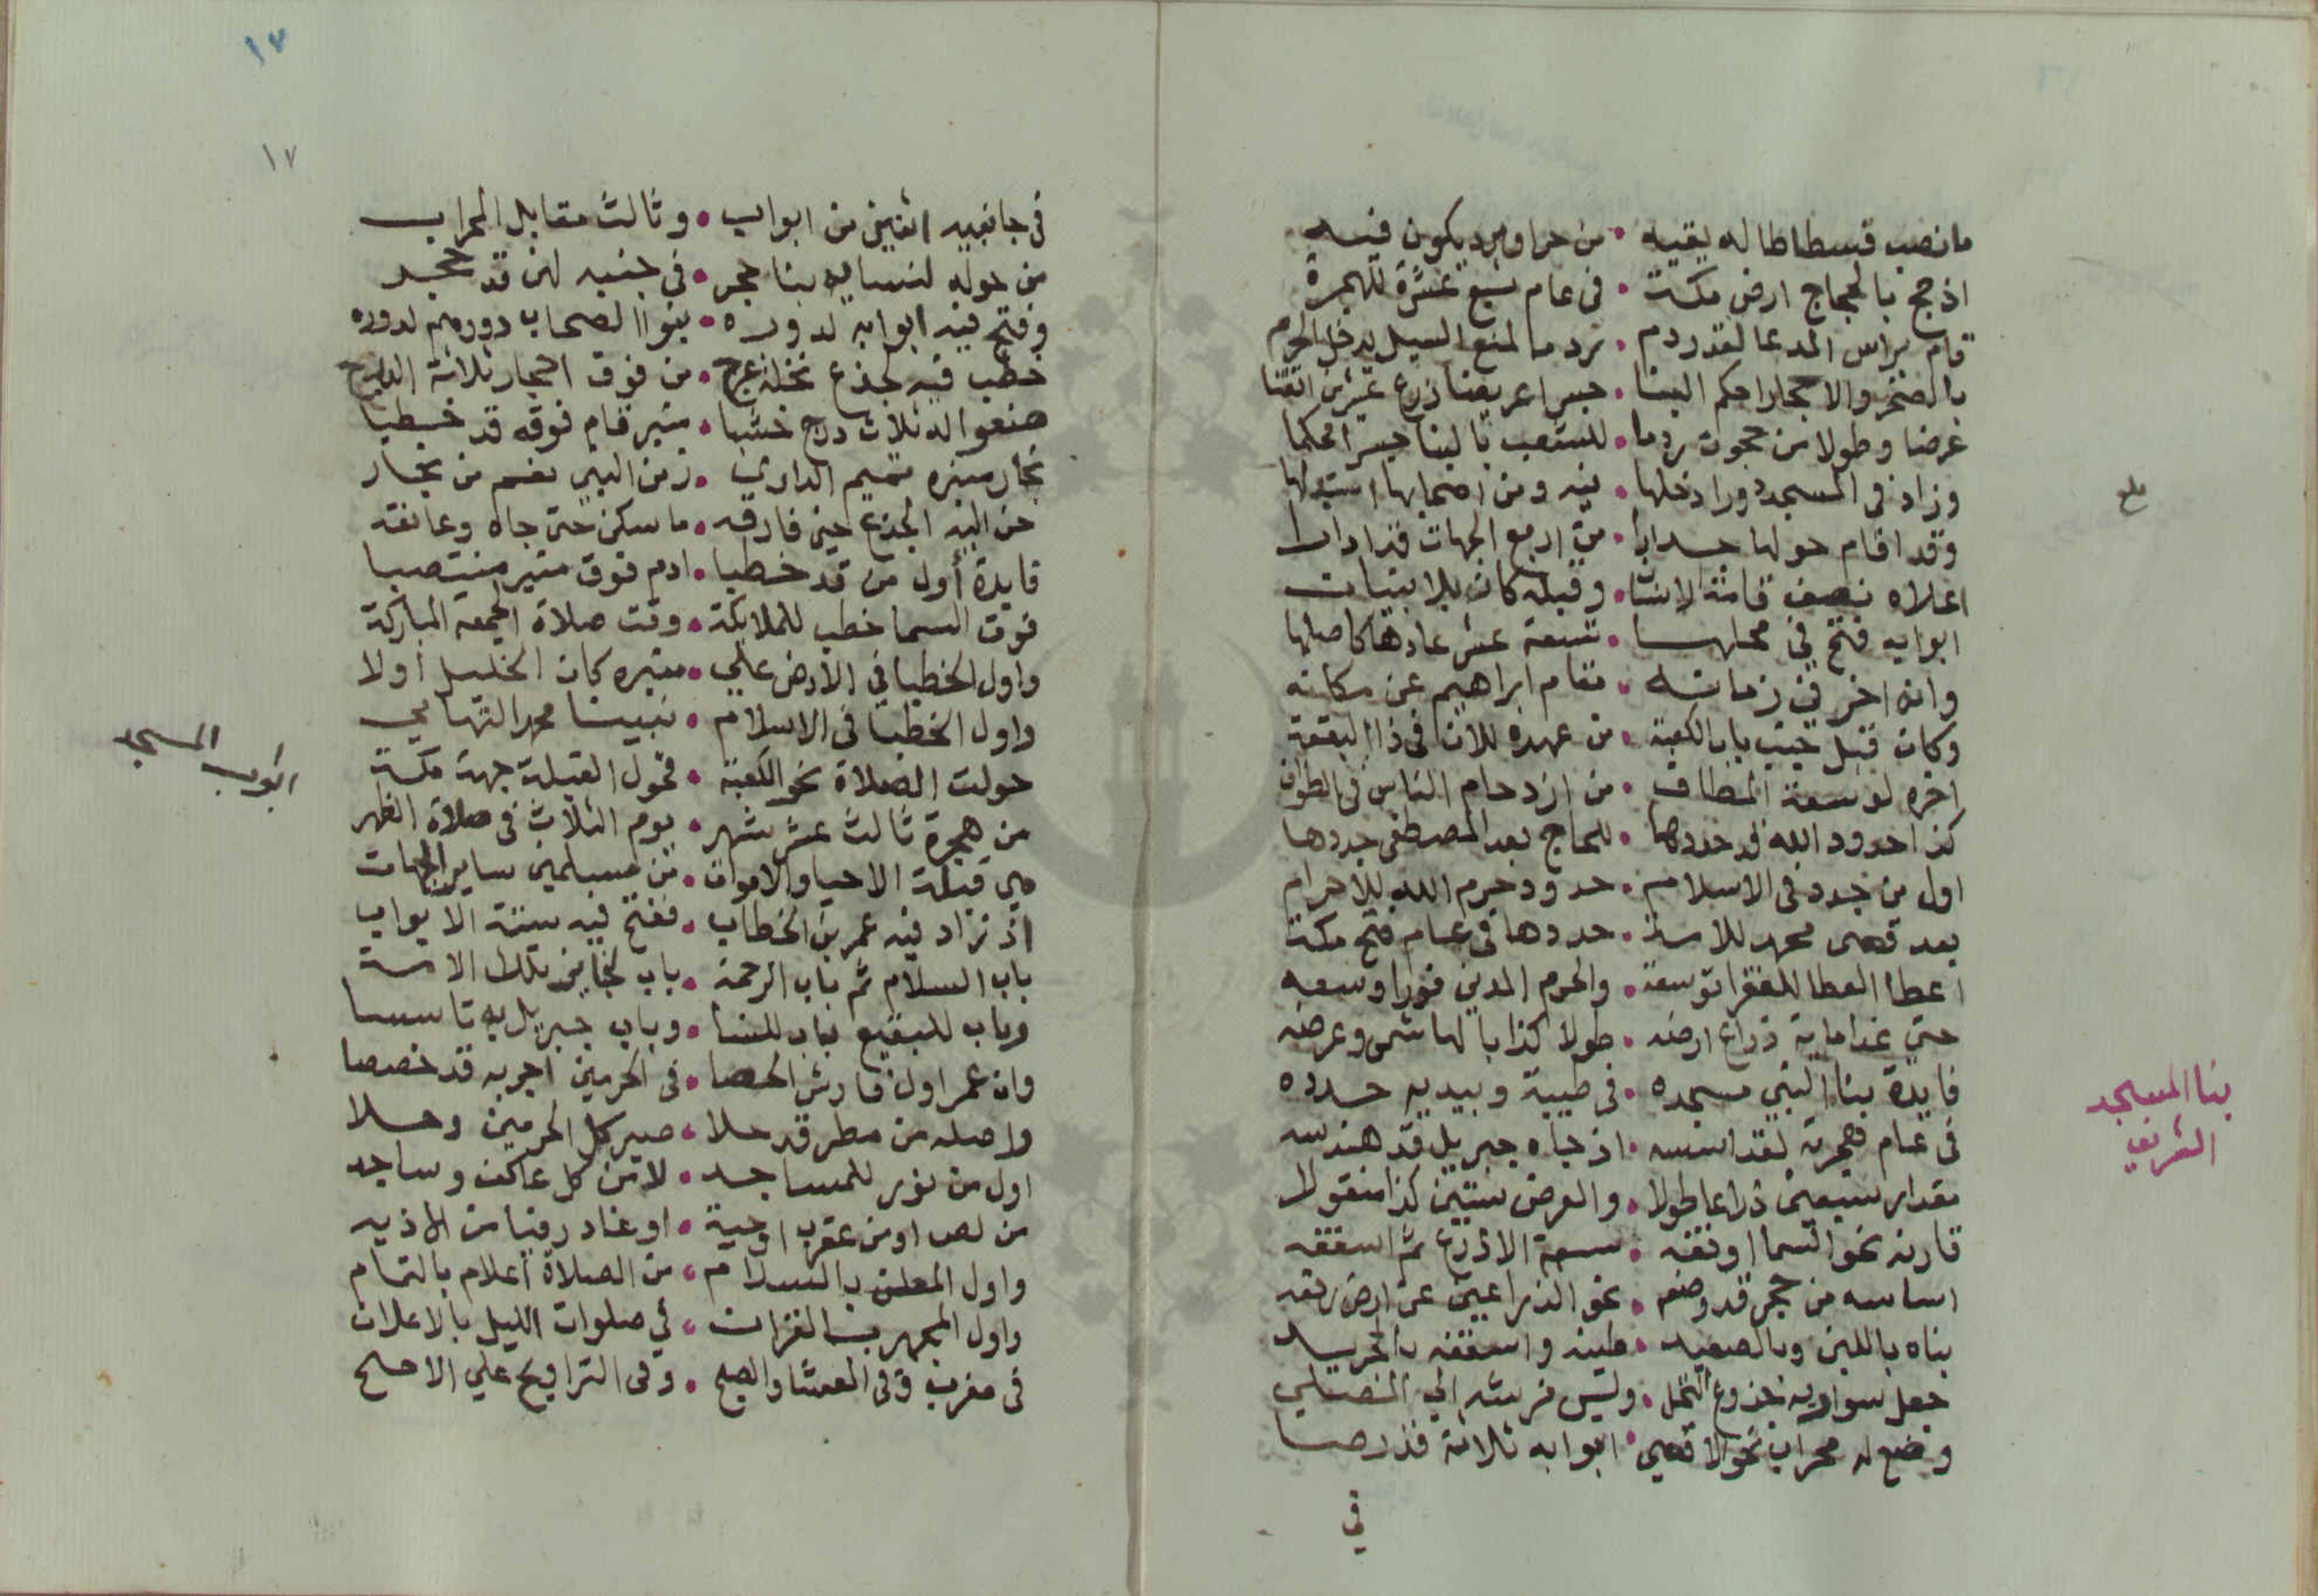 ما نصب فسطاطا له يقيه • من حر او برد يكون فيه
اذ حج بالحجاج ارض مكة • فى عام سبع عشرة للهجرة
قام براس المدعا لقد ردم • ردما لمنع السيل يدخل الحرم
بالصخر والاحجار احكم البنا • جسرا عريضا ذرع عشرين اتقنا
عرضا وطولا من حجون ردما • للشعب بالبنا جسرا محكما
وزاد فى المسجد دورا دخلها • فيه ومن اصحابها استبدلها
وقد اقام حولها جدارا • من اربع الجهات قد ادارا
اعلاه نصف قامة الانسان • وقبله كان بلا بنيان
ابوابه فتح فى محلها • تسعة عشر عادها كاصلها
وانه اخر فى زمانه • مقام ابراهيم عن مكانه
وكان قبل جنب باب الكعبة • من عهده للان فى ذا البقعة
اخره لوسعة المطاف • من ازدحام الناس فى الطواف
كذا حدود الله قد حددها • للحاج بعد المصطفى جددها
اول من جدد فى الاسلام • حدود حرم الله للاحرام
بعد قصى محمد للاسة • حددها فى عام فتح مكة
اعطا العطا للفقرا توسعة • والحرم المدني فورا وسعه
حتي غدا ماية ذراع ارضه • طولا كذا بالهاشمى وعرضه
فايدة بنا النبي مسجده • فى طيبة وبيديه حدده
فى عام هجرته لقد اسسه • اذ جاه جبريل قد هندسه
مقدار سبعين ذراعا طولا • والعرض ستين كذا منقولا
قارنه نحو السما اوقفه • سبعة الاذرع ثم اسقفه
اساسه من حجر قد وضعه • نحو الذراعين عن ارض رفعه
بناه باللبن وبالصعيد • طينه واسقفه بالجريد
جعل سواريه جذوع النخل • وليس فرشه الي المصلي
وضع له محراب نحو الاقصي • ابوابه ثلاثة قد رصا
في
بنا المسجد
الشريف
١٧
١٧
فى جانبيه اثنين من ابواب • وثالث مقابل المحراب
من حوله لنسايه بنا حجر • فى جنبه لهن قد حجر
وفتح فيه ابوابه لدوره • بنوا الصحاب دورهم لدوره
خطب فيه لجذع نخلة عرج • من فوق احجار ثلاثة الدرج
صنعوا له ثلاث درج خشبا • منبر قام فوقه قد خطبا
نجار منبره تميم الداري • زمن النبي نعم من نجار
حن اليه الجذع حين فارقه • ما سكن حتى جاه وعانقه
فايدة أول من قد خطبا • ادم فوق منبر منتصبا
فوق السما خطب للملايكة • وقت صلاة الجمعة المباركة
واول الخطبا في الارض علي • منبره كان الخليل أولا
واول الخطبا فى الاسلام • نبينا محمد التهامي
حولت الصلاة نحو الكعبة • فحول القبلة جهة مكة
من هجرة ثالث عشر شهر • يوم الثلاث فى صلاة الظهر
هي قبلة الاحيا والاموات • من مسلمين ساير الجهات
اذ زاد فيه عمر بن الخطاب • ففتح فيه ستة الابواب
باب السلام ثم باب الرحمة • باب لجابين تلك الامة
وباب للبقيع باب للنسا • وباب جبريل به تاسسا
وان عمر اول فارش الحصا • فى الحرمين اجر به قد خصصا
واصله من مطر قد حلا • صير كل الحرمين وحلا
اول من نور للمساجد • لامن كل عاكف وساجد
من لص او من عقرب او حية • او غادر فينا من الاذيه
واول المعلن بالسلام • من الصلاة أعلام بالتمام
واول المجهر بالقران • في صلوات الليل بالاعلان
فى مغرب وفى العشا والصبح • وفى التراويح علي الاصح
ابواب المسجد